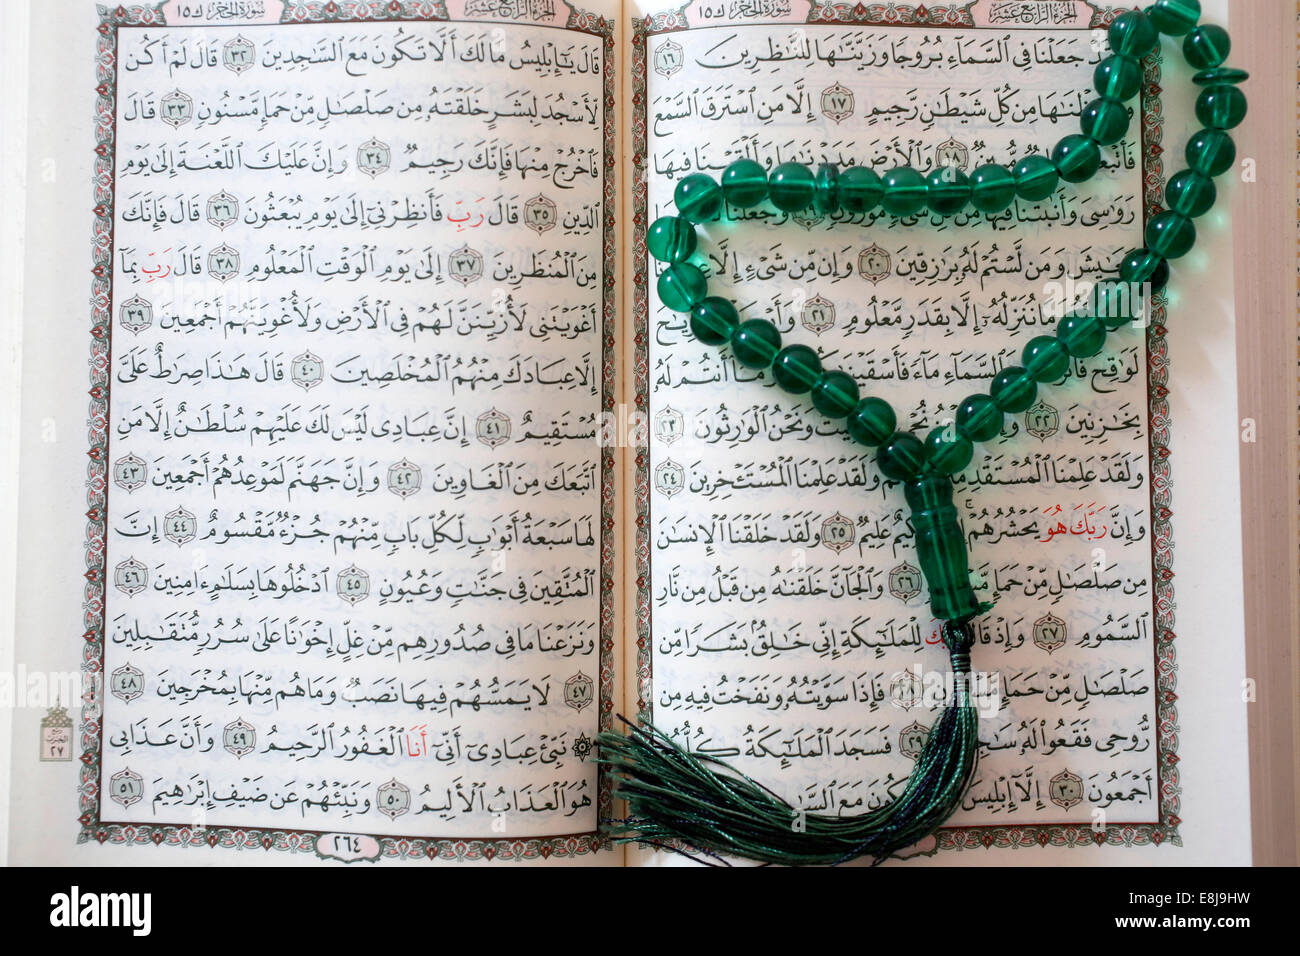 الجزء الرابع عشر
سورة الحجر ك ١٥
جَعَلْنَا فِي ٱلسَّمَآءِ بُرُوجًا وَزَيَّنَّٰهَا لِلنَّٰظِرِينَ ١٦
مِن كُلِّ شَيْطَٰنٍ رَّجِيمٍ ١٧ إِلَّا مَنِ ٱسْتَرَقَ ٱلسَّمْعَ
١٨ وَٱلْأَرْضَ مَدَدْنَٰهَا وَأَلْقَيْنَا فِيهَا
رَوَٰسِىَ وَأَنۢبَتْنَا فِيهَا مِن كُلِّ شَىْءٍ مَّوْزُونٍ ١٩ وَجَعَلْنَا
وَمَن لَّسْتُمْ لَهُۥ بِرَٰزِقِينَ ٢٠ وَإِن مِّن شَىْءٍ إِلَّا
وَمَا نُنَزِّلُهُۥٓ إِلَّا بِقَدَرٍ مَّعْلُومٍ ٢١
لَوَٰقِحَ ٱلسَّمَآءِ مَآءً فَأَسْقَيْنَٰ وَمَآ أَنتُمْ لَهُۥ
بِخَٰزِنِينَ ٢٢ وَنَحْنُ ٱلْوَٰرِثُونَ ٢٣
وَلَقَدْ عَلِمْنَا ٱلْمُسْتَقْدِمِ وَلَقَدْ عَلِمْنَا ٱلْمُسْتَـْٔخِرِينَ ٢٤
وَإِنَّ رَبَّكَ هُوَ يَحْشُرُهُمْ عَلِيمٌ ٢٥ وَلَقَدْ خَلَقْنَا ٱلْإِنسَٰنَ
مِن صَلْصَٰلٍ مِّنْ حَمَإٍ ٢٦ وَٱلْجَآنَّ خَلَقْنَٰهُ مِن قَبْلُ مِن نَّارِ
ٱلسَّمُومِ ٢٧ وَإِذْ قَا لِلْمَلَٰٓئِكَةِ إِنِّى خَٰلِقٌۢ بَشَرًا مِّن
صَلْصَٰلٍ مِّنْ حَمَإٍ ٢٨ فَإِذَا سَوَّيْتُهُۥ وَنَفَخْتُ فِيهِ مِن
رُّوحِى فَقَعُوا۟ لَهُۥ ٢٩ فَسَجَدَ ٱلْمَلَٰٓئِكَةُ كُلُّهُمْ
أَجْمَعُونَ ٣٠ إِلَّآ إِبْلِيسَ مَعَ
الجزء الرابع عشر
سورة الحجر ك ١٥
قَالَ يَٰٓإِبْلِيسُ مَا لَكَ أَلَّا تَكُونَ مَعَ ٱلسَّٰجِدِينَ ٣٢ قَالَ لَمْ أَكُن
لِّأَسْجُدَ لِبَشَرٍ خَلَقْتَهُۥ مِن صَلْصَٰلٍ مِّنْ حَمَإٍ مَّسْنُونٍ ٣٣ قَالَ
فَٱخْرُجْ مِنْهَا فَإِنَّكَ رَجِيمٌ ٣٤ وَإِنَّ عَلَيْكَ ٱللَّعْنَةَ إِلَىٰ يَوْمِ
ٱلدِّينِ ٣٥ قَالَ رَبِّ فَأَنظِرْنِىٓ إِلَىٰ يَوْمِ يُبْعَثُونَ ٣٦ قَالَ فَإِنَّكَ
مِنَ ٱلْمُنظَرِينَ ٣٧ إِلَىٰ يَوْمِ ٱلْوَقْتِ ٱلْمَعْلُومِ ٣٨ قَالَ رَبِّ بِمَآ
أَغْوَيْتَنِى لَأُزَيِّنَنَّ لَهُمْ فِى ٱلْأَرْضِ وَلَأُغْوِيَنَّهُمْ أَجْمَعِينَ ٣٩
إِلَّا عِبَادَكَ مِنْهُمُ ٱلْمُخْلَصِينَ ٤٠ قَالَ هَٰذَا صِرَٰطٌ عَلَىَّ
مُسْتَقِيمٌ ٤١ إِنَّ عِبَادِى لَيْسَ لَكَ عَلَيْهِمْ سُلْطَٰنٌ إِلَّا مَنِ
ٱتَّبَعَكَ مِنَ ٱلْغَاوِينَ ٤٢ وَإِنَّ جَهَنَّمَ لَمَوْعِدُهُمْ أَجْمَعِينَ ٤٣
لَهَا سَبْعَةُ أَبْوَٰبٍ لِّكُلِّ بَابٍ مِّنْهُمْ جُزْءٌ مَّقْسُومٌ ٤٤ إِنَّ
ٱلْمُتَّقِينَ فِى جَنَّٰتٍ وَعُيُونٍ ٤٥ ٱدْخُلُوهَا بِسَلَٰمٍ ءَامِنِينَ ٤٦
وَنَزَعْنَا مَا فِى صُدُورِهِم مِّنْ غِلٍّ إِخْوَٰنًا عَلَىٰ سُرُرٍ مُّتَقَٰبِلِينَ
٤٧ لَا يَمَسُّهُمْ فِيهَا نَصَبٌ وَمَا هُم مِّنْهَا بِمُخْرَجِينَ ٤٨
۞ نَبِّئْ عِبَادِىٓ أَنِّىٓ أَنَا ٱلْغَفُورُ ٱلرَّحِيمُ ٤٩ وَأَنَّ عَذَابِى
هُوَ ٱلْعَذَابُ ٱلْأَلِيمُ ٥٠ وَنَبِّئْهُمْ عَن ضَيْفِ إِبْرَٰهِيمَ ٥١
٢٦٤
٢٧
alamy
E8J9HW
www.alamy.com